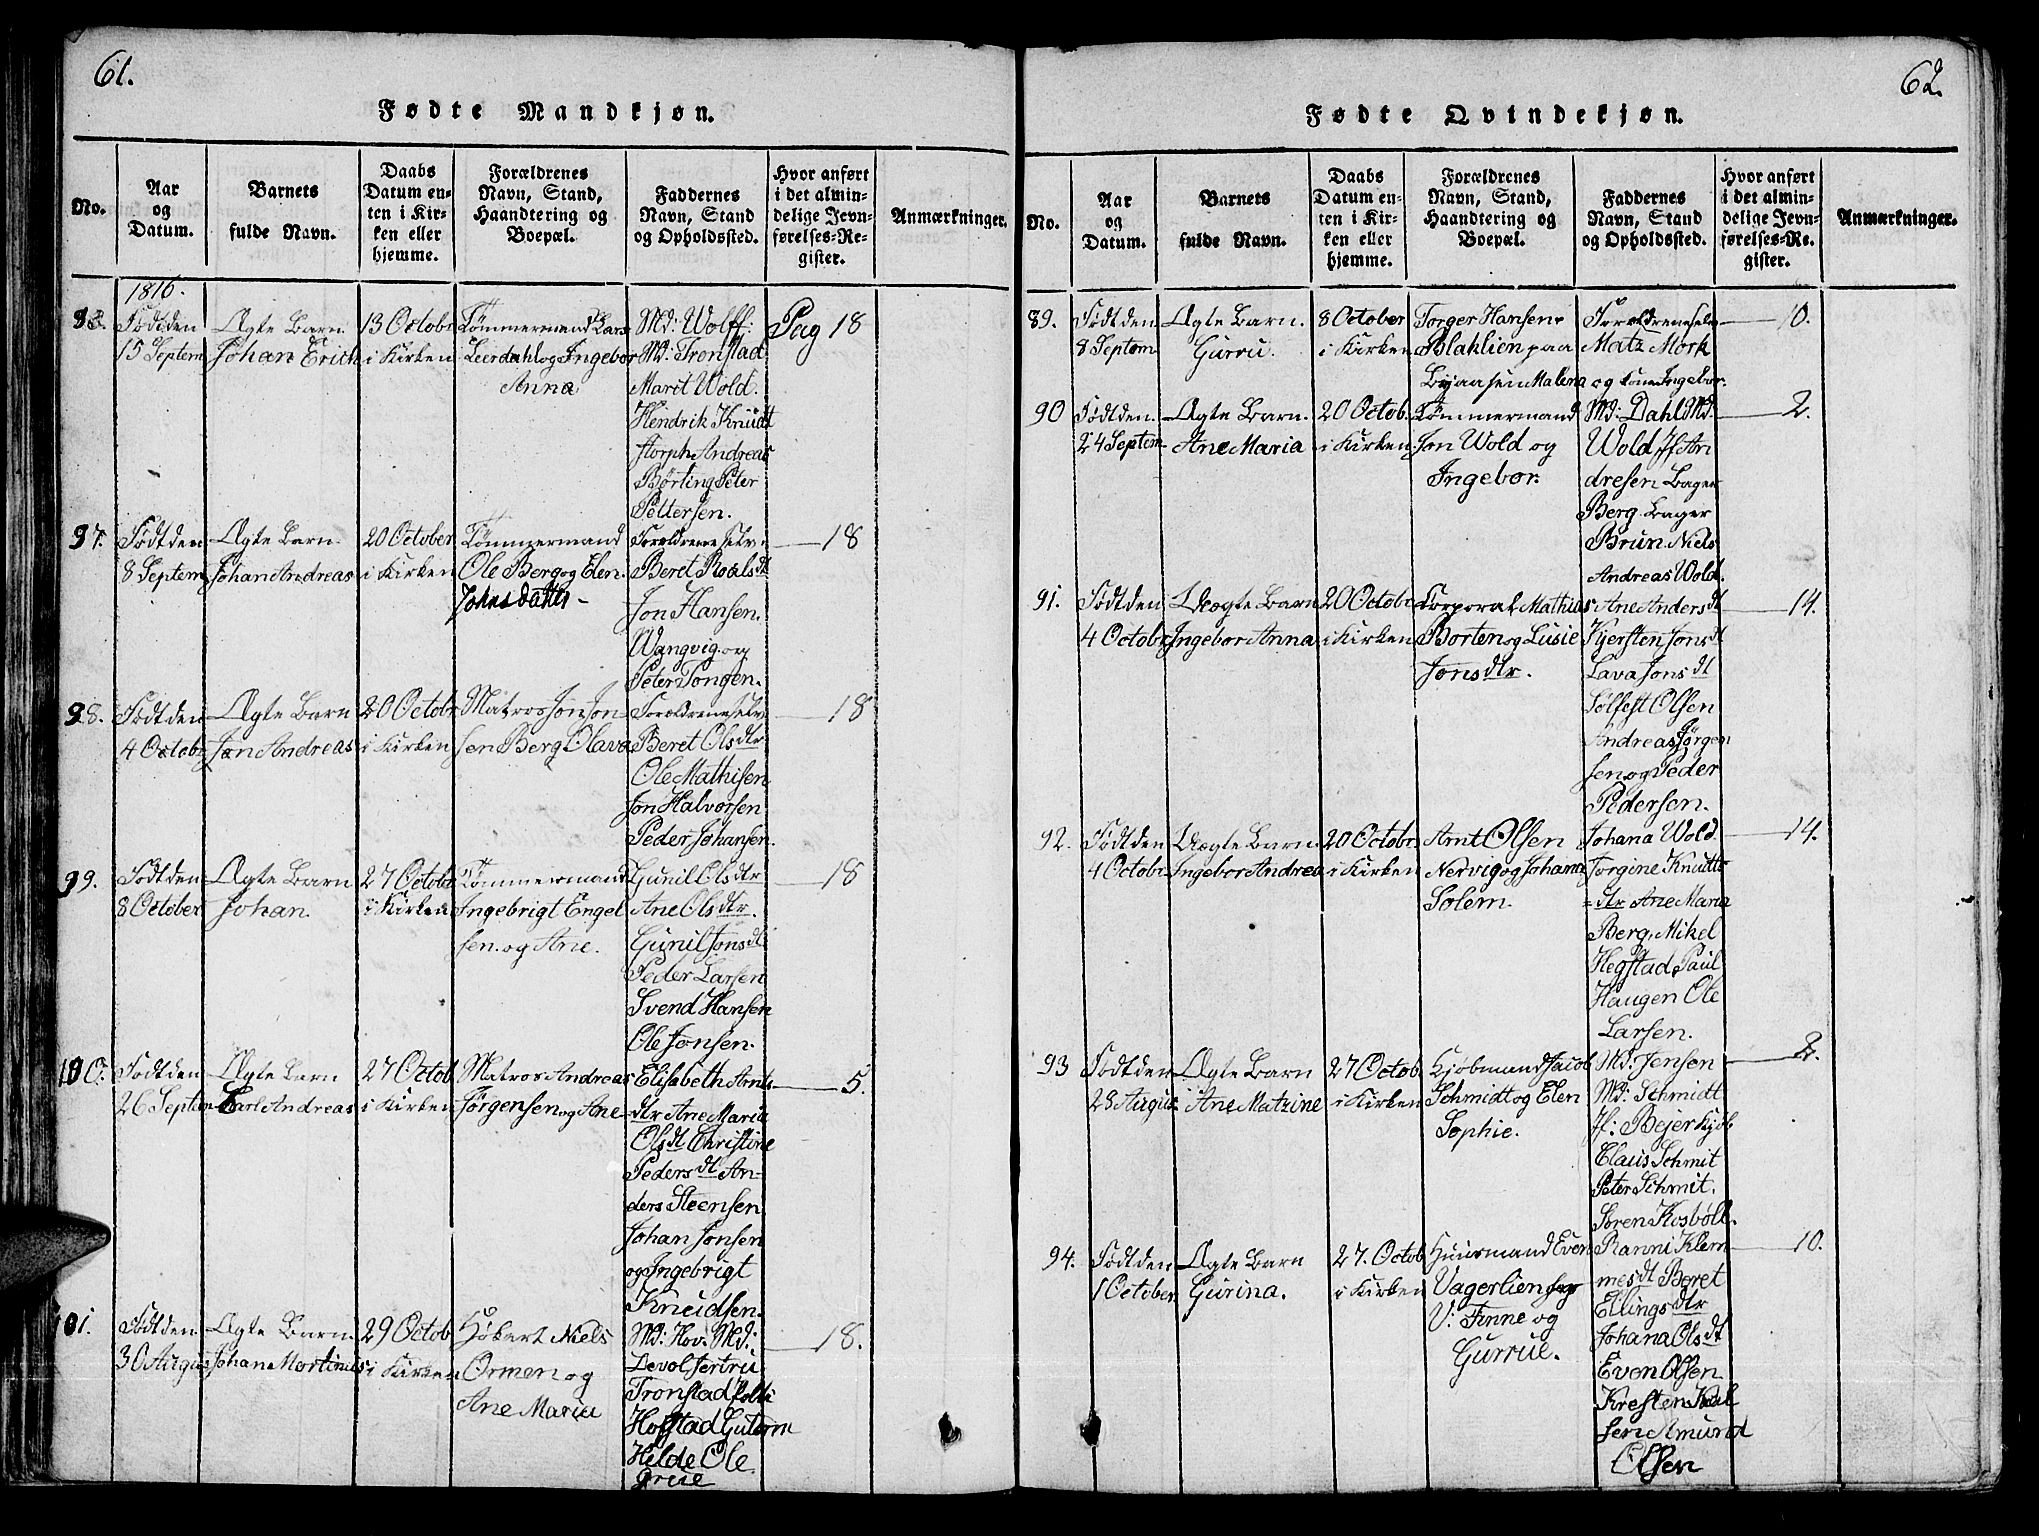 61.
Fødte Mandkjøn.
No.
Aar
og
Datum.
Barnets
fulde Navn.
Daabs
Datum en-
ten i Kir-
ken eller
hjemme.
Forældrenes
Navn, Stand,
Haandtering og
Boepæl.
Faddernes
Navn, Stand
og Opholdssted.
Hvor anført
i det almin-
delige Jevn-
førelses-Re-
gister.
Anmærkninger.
1816.
Födt den
15 Septem
Ægte Barn.
Johan Erich
13 Octobr
i Kirken
Tømmermand Lars
Leerdahl og Ingebor
Anna
Md: Wolff:
Md: Tronstad
Marit Wold.
Hendrik Knudt
Andreas
Børting Peter
Pettersen.
Pag 18
97.
Födt den
8 Septem
Ægte Barn.
Johan Andreas
20 October
i Kirken
Tømmermand
Ole Berg og Elen
Johnsdatter
Forældrene selv
Beret Roals dt
Jon Hansen
Wangvig og
Peter Tongen.
18
98.
Födt den
4 Octobr
Ægte Barn
Jon Andreas
20 Octobr
i Kirken
Matros Jon Jon
sen Berg Olava
Forældrene selv
Beret Olsdtr
Ole Mathisen
Jon Halvorsen
Peder Johansen.
18
99.
Födt den
8 October
Ægte Barn
Johan.
27 Octobr
i Kirken
Tømmermand
Ingebrigt Engel
sen. og Ane.
Gunil Olsdtr
Ane Olsdtr.
Gunil Jonsdt
Peder Larsen
Svend Hansen
Ole Jonsen.
18
100.
Födt den
26 Septem
Ægte Barn
Carl Andreas
27 Octob
i Kirken
Matros Andreas
Jørgensen og Ane
Elisabeth Arnts
dtr Ane Maria
Olsdt Christine
Peders dt An-
ders Steensen
Johan Jonsen
og Ingebrigt
Knudsen.
5.
101.
Födt den
30 Augus
Ægte Barn.
Johan Mortinus
29 Octob
i Kirken
Høkert Niels
Ormen og
Ane Maria
Md: Hov. Md:
Devol Jertru
Tronstad
Hofstad Gutorm
Hilde Ole
Grue
18.
62.
Fødte Qvindekjøn.
No.
Aar
og
Datum.
Barnets
fulde Navn.
Daabs
Datum en-
ten i Kir-
ken eller
hjemme.
Forældrenes
Navn, Stand,
Haandtering og
Boepæl.
Faddernes
Navn, Stand
og Opholdssted.
Hvor anført
i det almin-
delige Jevn-
førelses-Re-
gister.
Anmærkninger.
89.
Födt den
8 Septem
Ægte Barn.
Gurru.
8 October
i Kirken
Torger Hansen
Blaklien paa
Byaasen Malena
Forældrene selv
Matz Mork
og Kone Ingebor.
10.
90
Födt den
24 Septem
Ægte Barn.
Ane Maria
20 Octob.
i Kirken
Tømmermand
Jon Wold og
Ingebor.
Md: Dahl Md:
Wold Jf An
dresen Bager
Berg Bager
Brun Niels
Andreas Wold.
2.
91.
Födt den
4 Octobr
Uægte Barn
Ingebor Anna
20 Octobr
i Kirken
Corporal Mathias
Borten og Lusie
Jonsdtr.
Ane Anders dt
Kjersten Jonsdt
Lava Jons dt
Sølfest Olsen
Andreas Jørgen
sen og Peder
Pedersen.
14.
92.
Födt den
4 Octobr
Uægte Barn.
Ingebor Andrea
20 Octobr
i Kirken
Arnt Olsen
Nervig og Johana
Solem.
Johana Wold
Jorgine Knutts
=dtr Ane Maria
Berg. Mikel
Hegstad Paul
Haugen Ole
Larsen.
14.
93
Födt den
28 Augus
Ægte Barn
Ane Matzine
27 Octob.
i Kirken
Kjøbmand Jacob
Schmidt og Elen
Sophie.
Md: Jensen
Md: Schmidt
Jf: Bejer Kjøb
Claus Schmit
Peter Schmit.
Søren Kosbøll.
2.
94.
Födt den
1 October
Ægte Barn
Gurina.
27. Octob
i Kirken
Huusmand Even
Vagerlien
V: Finne og
Gurrue.
Ranni Klem
mesdt Beret
Ellingsdtr
Johana Olsdt
Even Olsen
Kresten Kal
sen Amund
Olsen
10.